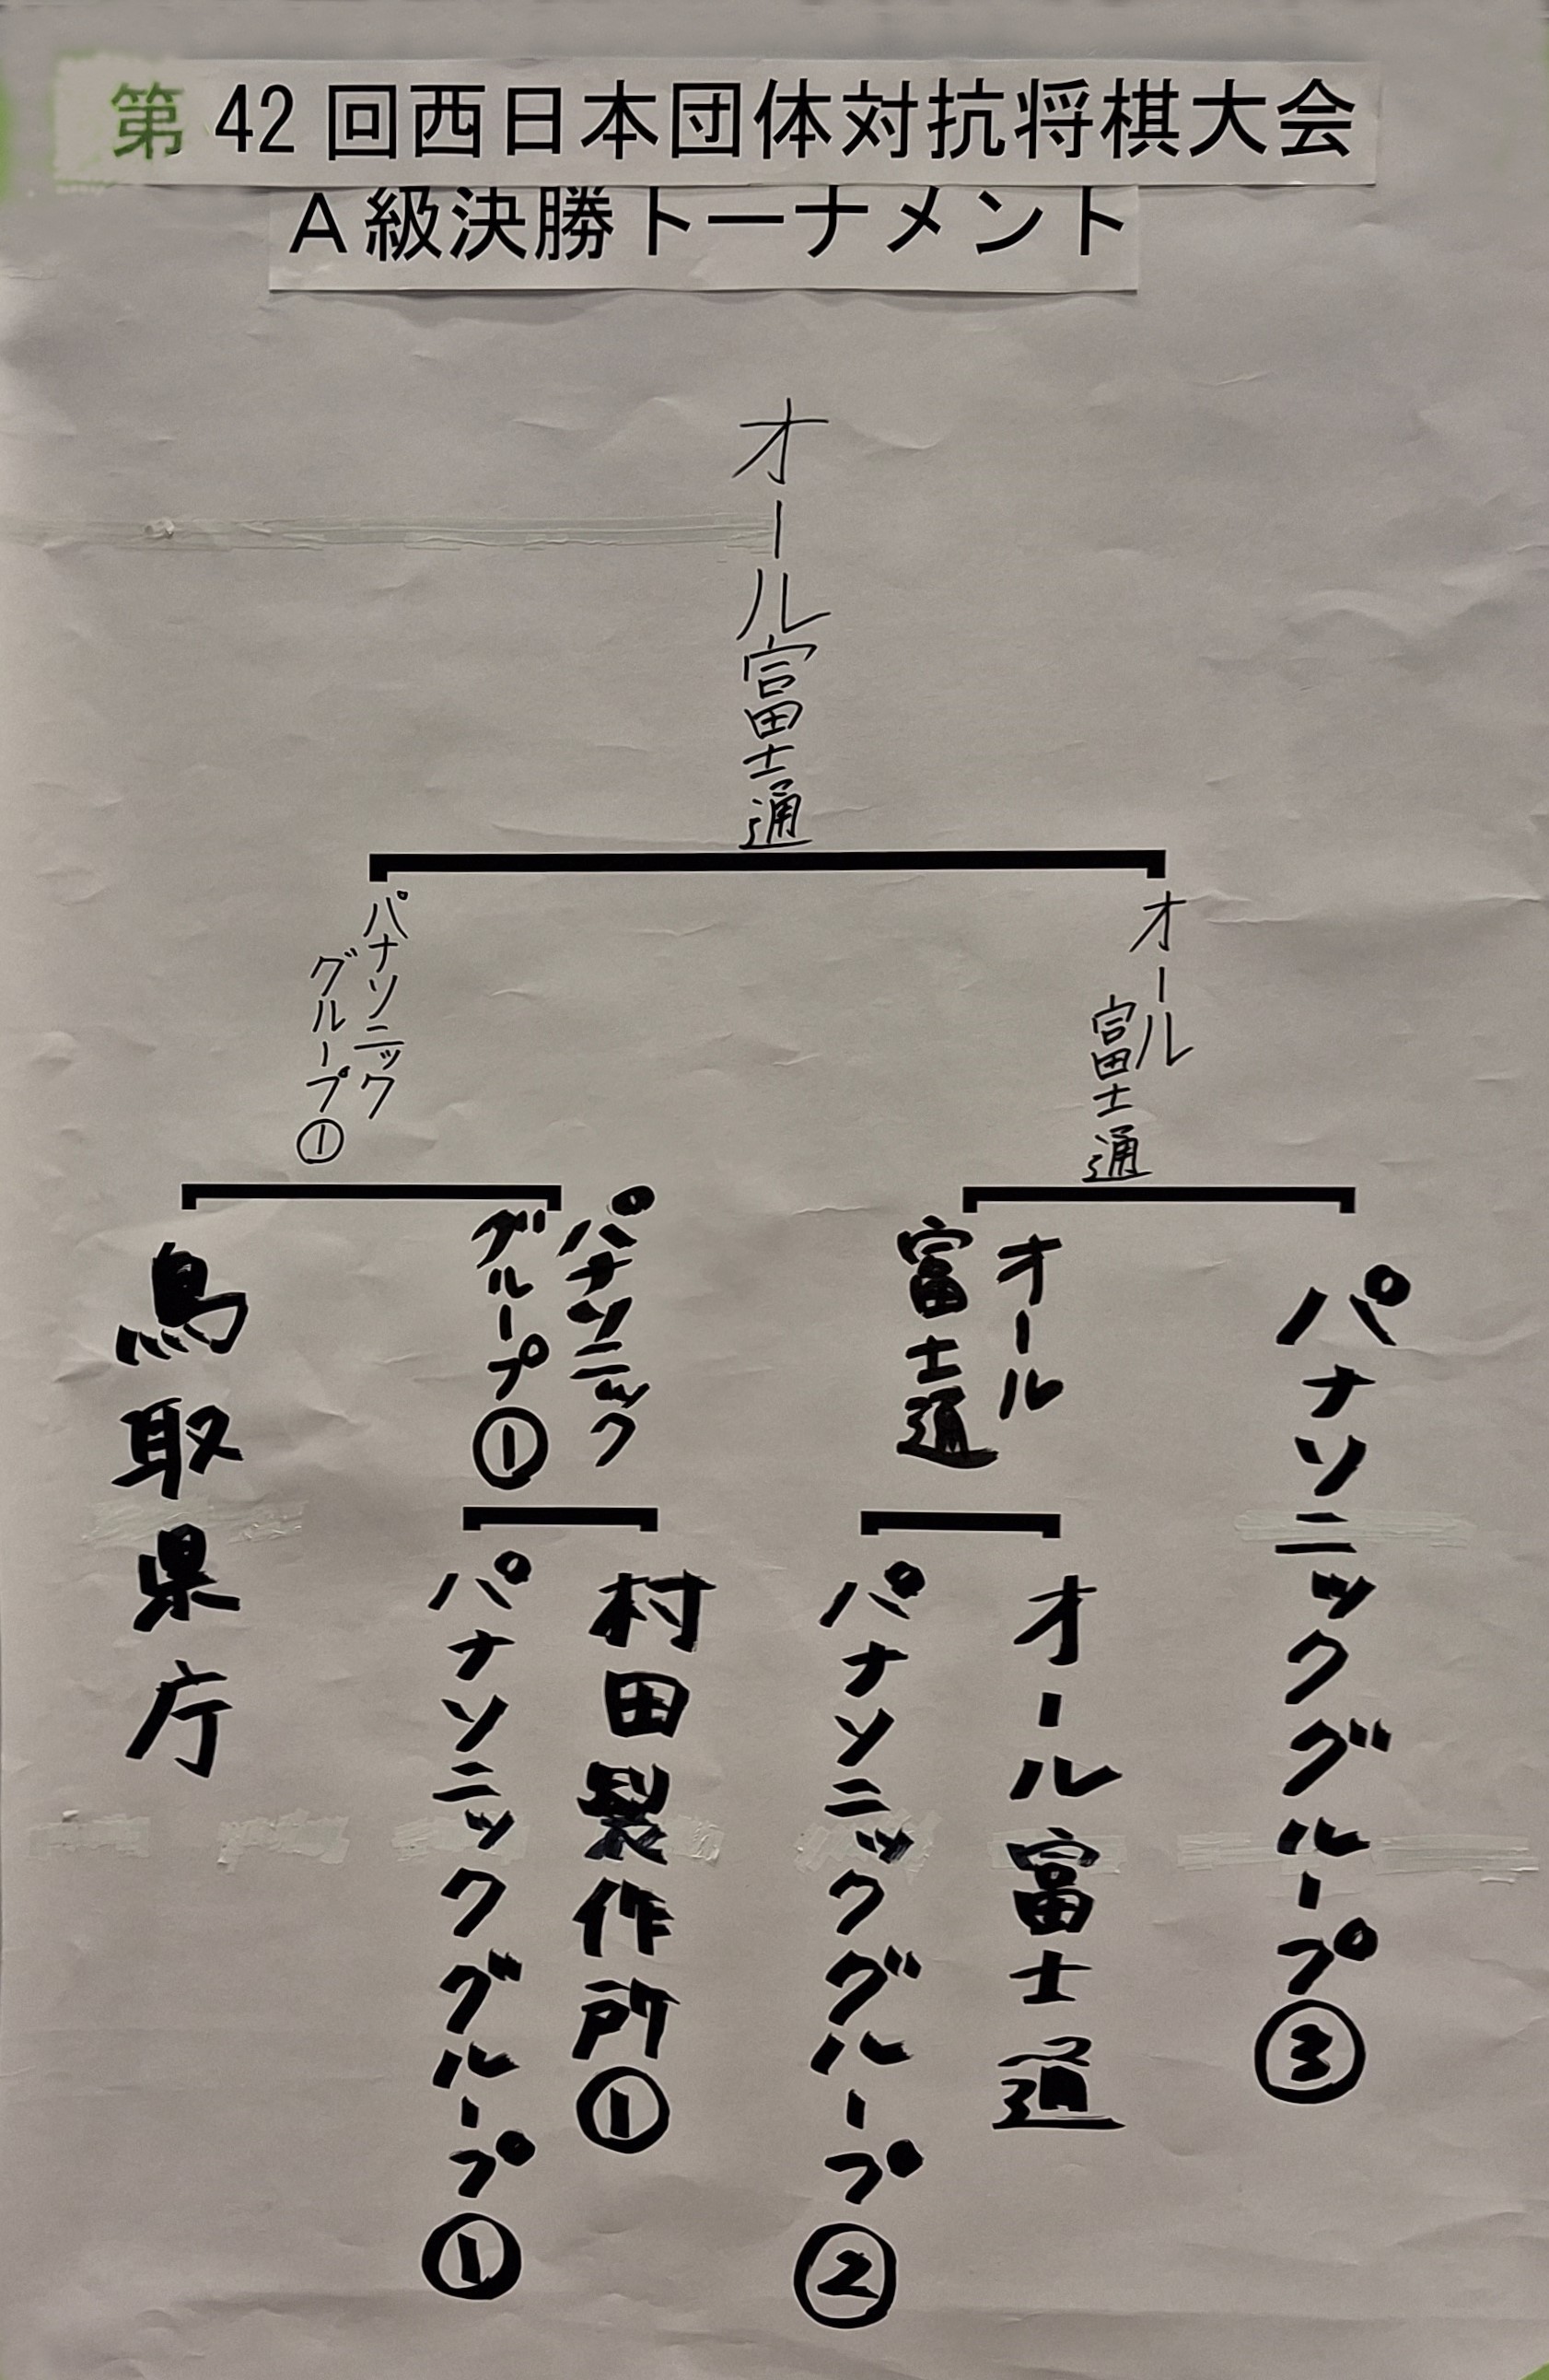 第42回西日本団体対抗将棋大会
A級決勝トーナメント
オール富士通
パナソニック
グループ①
オール
富士通
鳥取県庁
パナソニック
グループ①
オール
富士通
パナソニックグループ③
パナソニックグループ①
村田製作所①
パナソニックグループ②
オール富士通